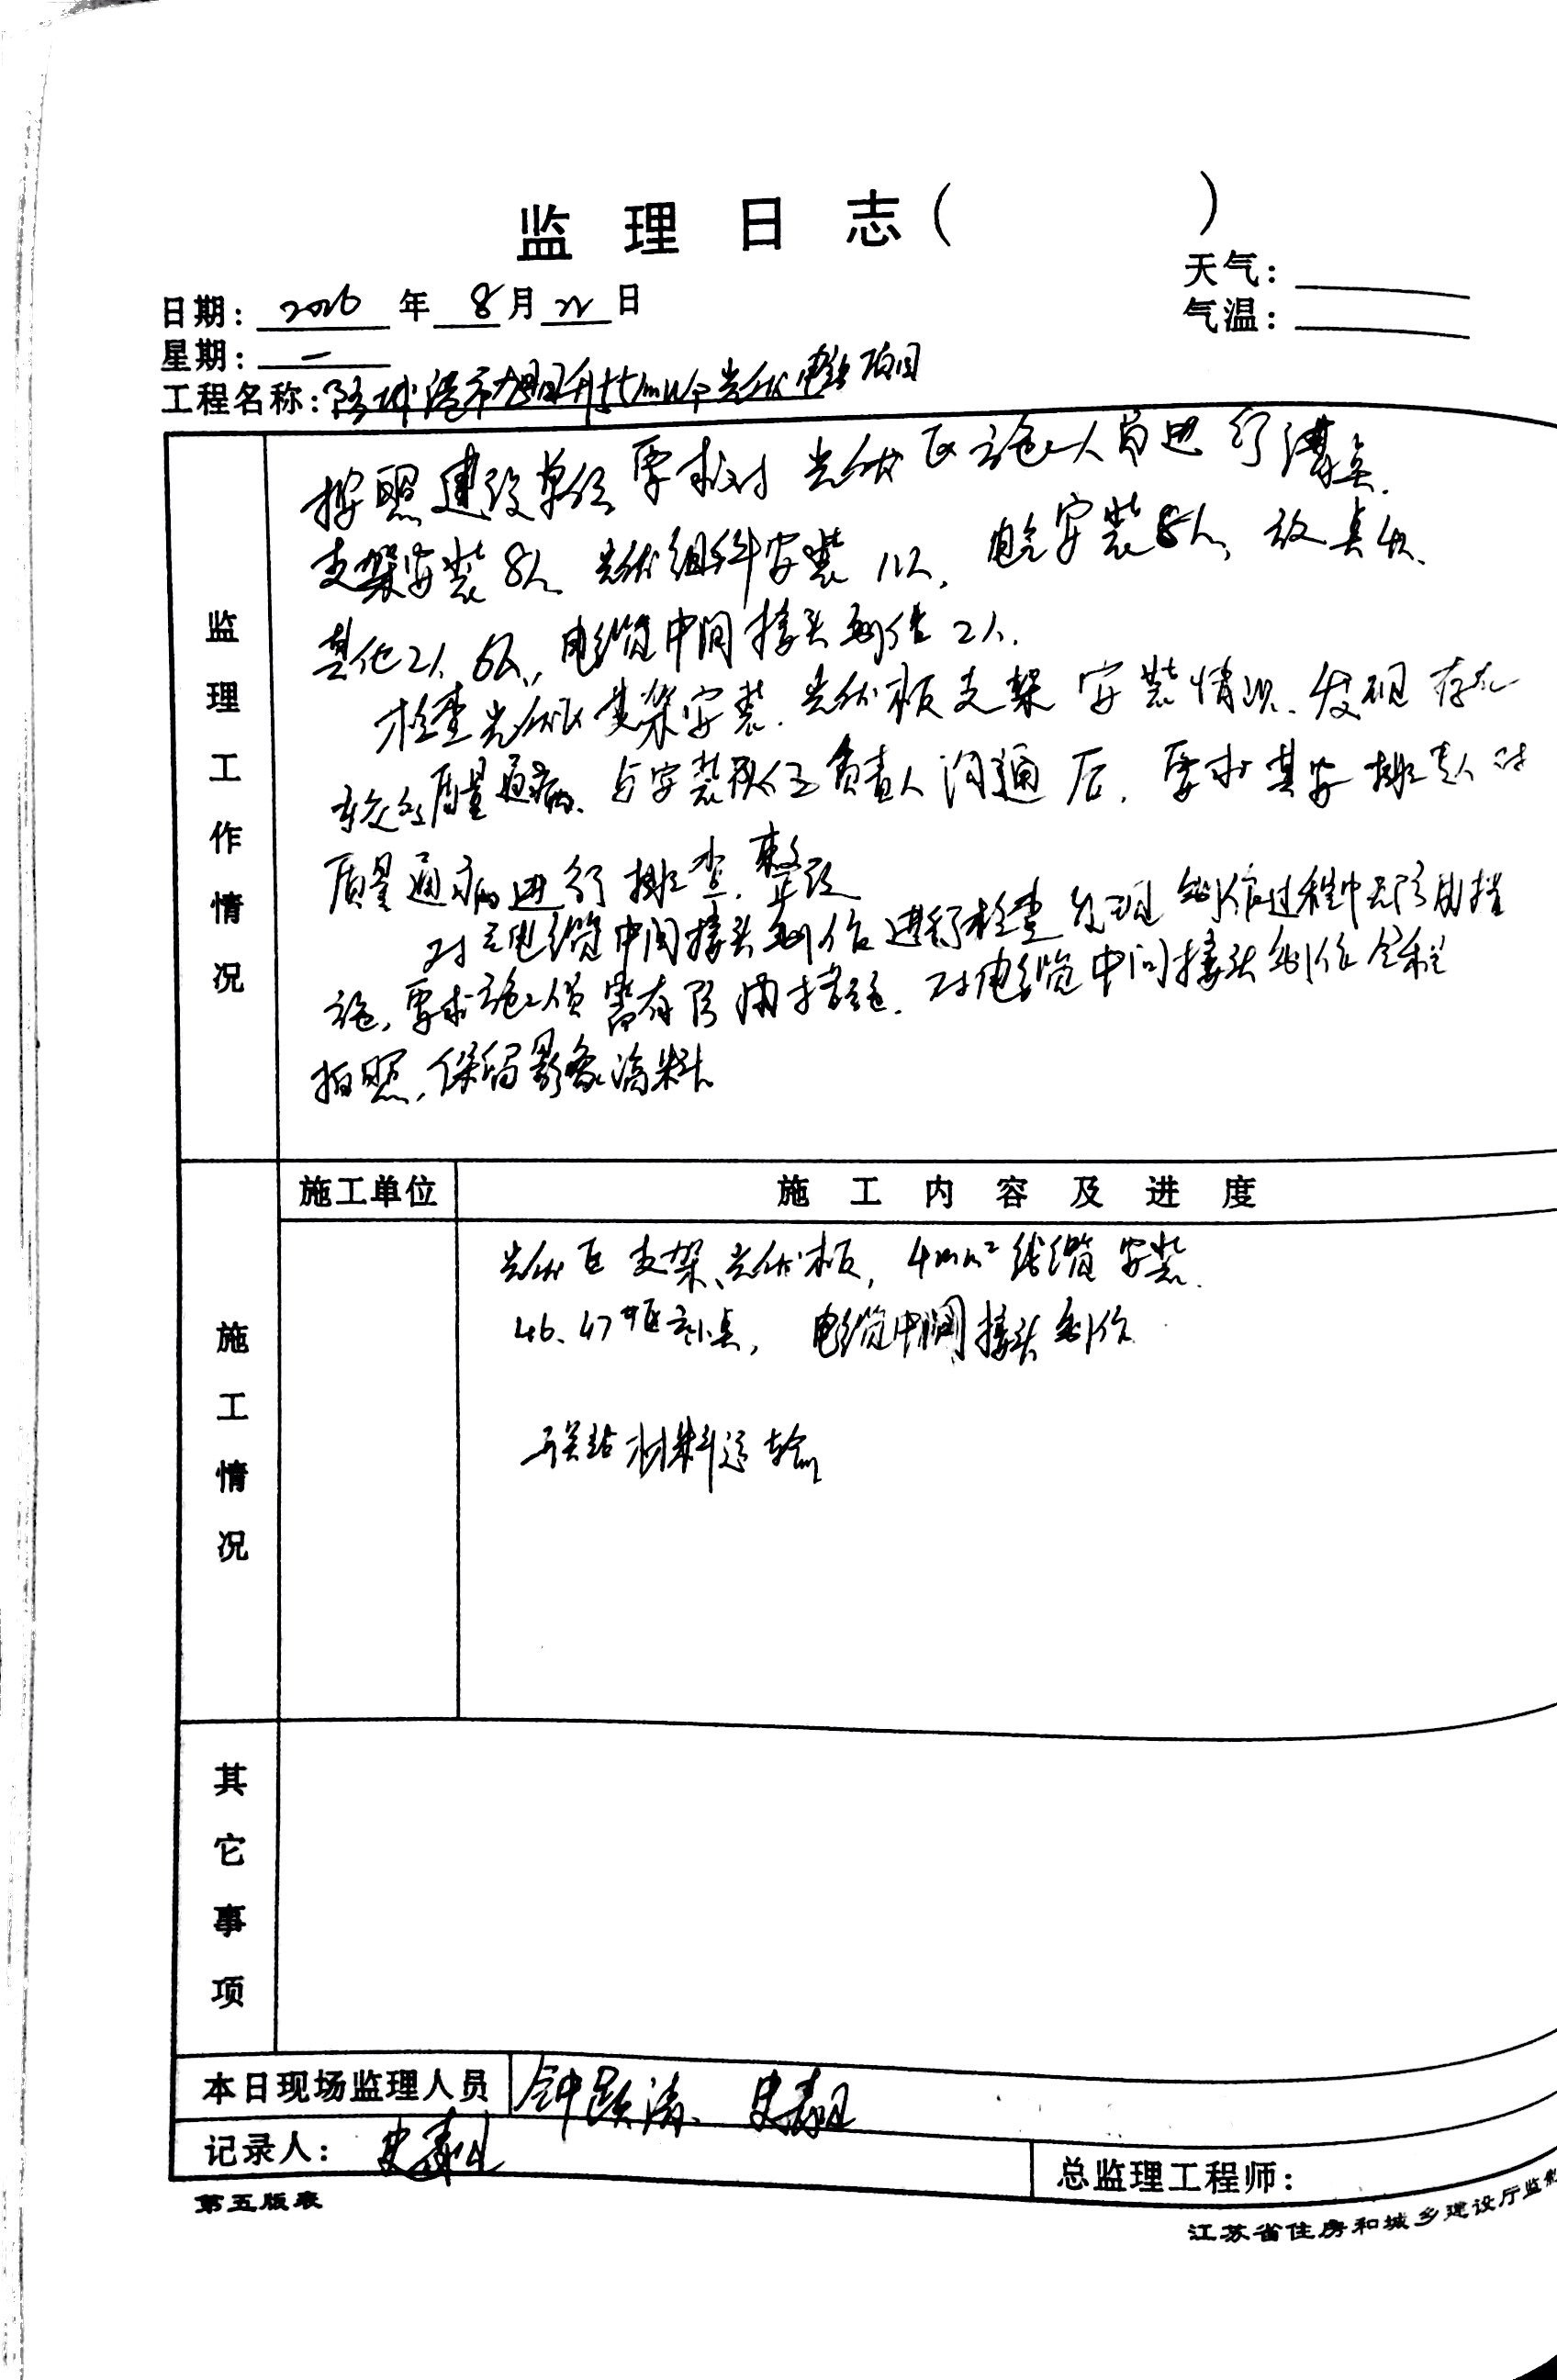 监理日志( )
天气:
日期: 2016 年 8 月 22 日
气温:
星期: 一
工程名称: 防城港市 光伏电站项目
按照建设单位要求对光伏区施工人员进行清点.
支架安装8人 光伏组件安装11人, 电气安装8人, 放
其他2人 电缆中间接头制作2人.
检查光伏区支架安装. 光伏板支架安装情况. 发现存在
较多质量通病. 与安装队伍负责人沟通后, 要求其安排专人对
质量通病进行排查. 整改
对 电缆中间接头制作进行检查 发现制作过程中无防雨措
施, 要求施工人员需有防雨措施. 对电缆中间接头制作全程
拍照, 保留影像资料.
监理工作情况
施工单位
施工内容及进度
光伏区支架、光伏板, 4mm²线缆安装.
46、47#区 电缆中间接头制作
开关站材料运输
施工情况
其它事项
本日现场监理人员 钟 史
记录人: 史
总监理工程师:
第五版表
江苏省住房和城乡建设厅监制